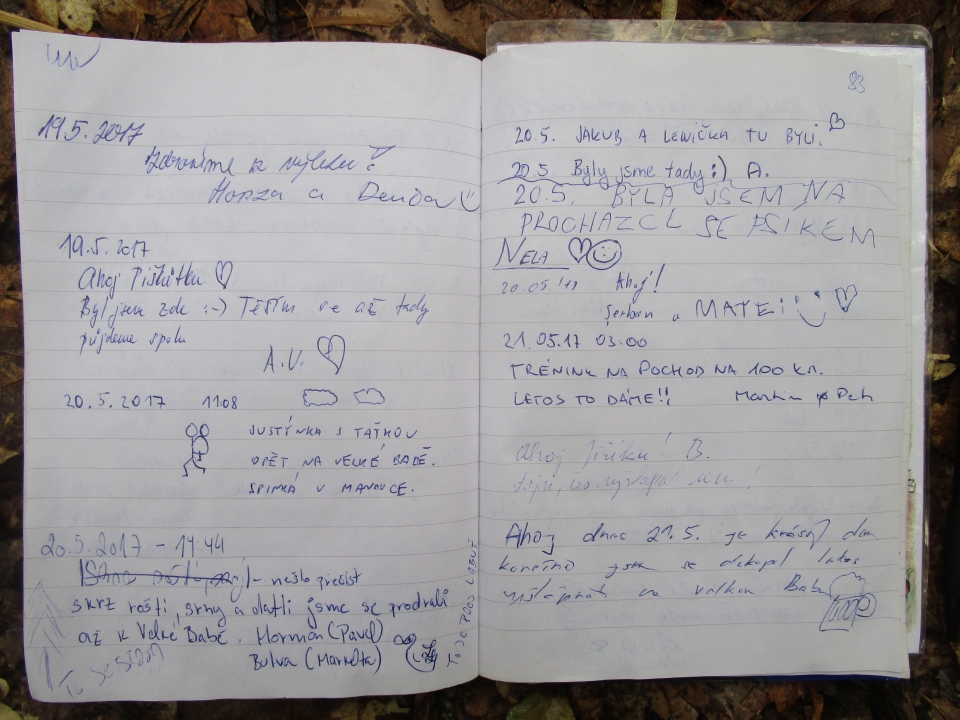 19.5.2017
Zdravíme z výletu!
Honza a Denda
19.5.2017
Ahoj Piškitku
Byl jsem zde :-) TĚŠÍM se až tady
půjdeme spolu
A.V.
20.5.2017 11:08
JUSTÝNKA S TAŤKOU
OPĚT NA VELKÉ BABĚ.
SPINKÁ V MANDUCE.
20.5.2017 - 14:44
- nešlo přečíst
skrz roští, srny a datli jsme se prodrali
až k Velké Babě. Hormon (Pavel)
Bulva (Markéta)
TO JE STROM
TO JE
83
20.5. JAKUB A LENIČKA TU BYLI.
20.5. Byly jsme tady :) A.
20.5. BYLA JSEM NA
PROCHÁZCE SE PSÍKEM
NELA
20.05.'17 Ahoj!
Șerban a MATEI
21.05.17 03:00
TRÉNINK NA POCHOD NA 100 KM.
LETOS TO DÁME!! Martin & Petr
Ahoj Jiříku! B.
Ahoj dnes 21.5. je krásný den
konečně jsem se dokopal letos
vyšlápnout na velkou Babu